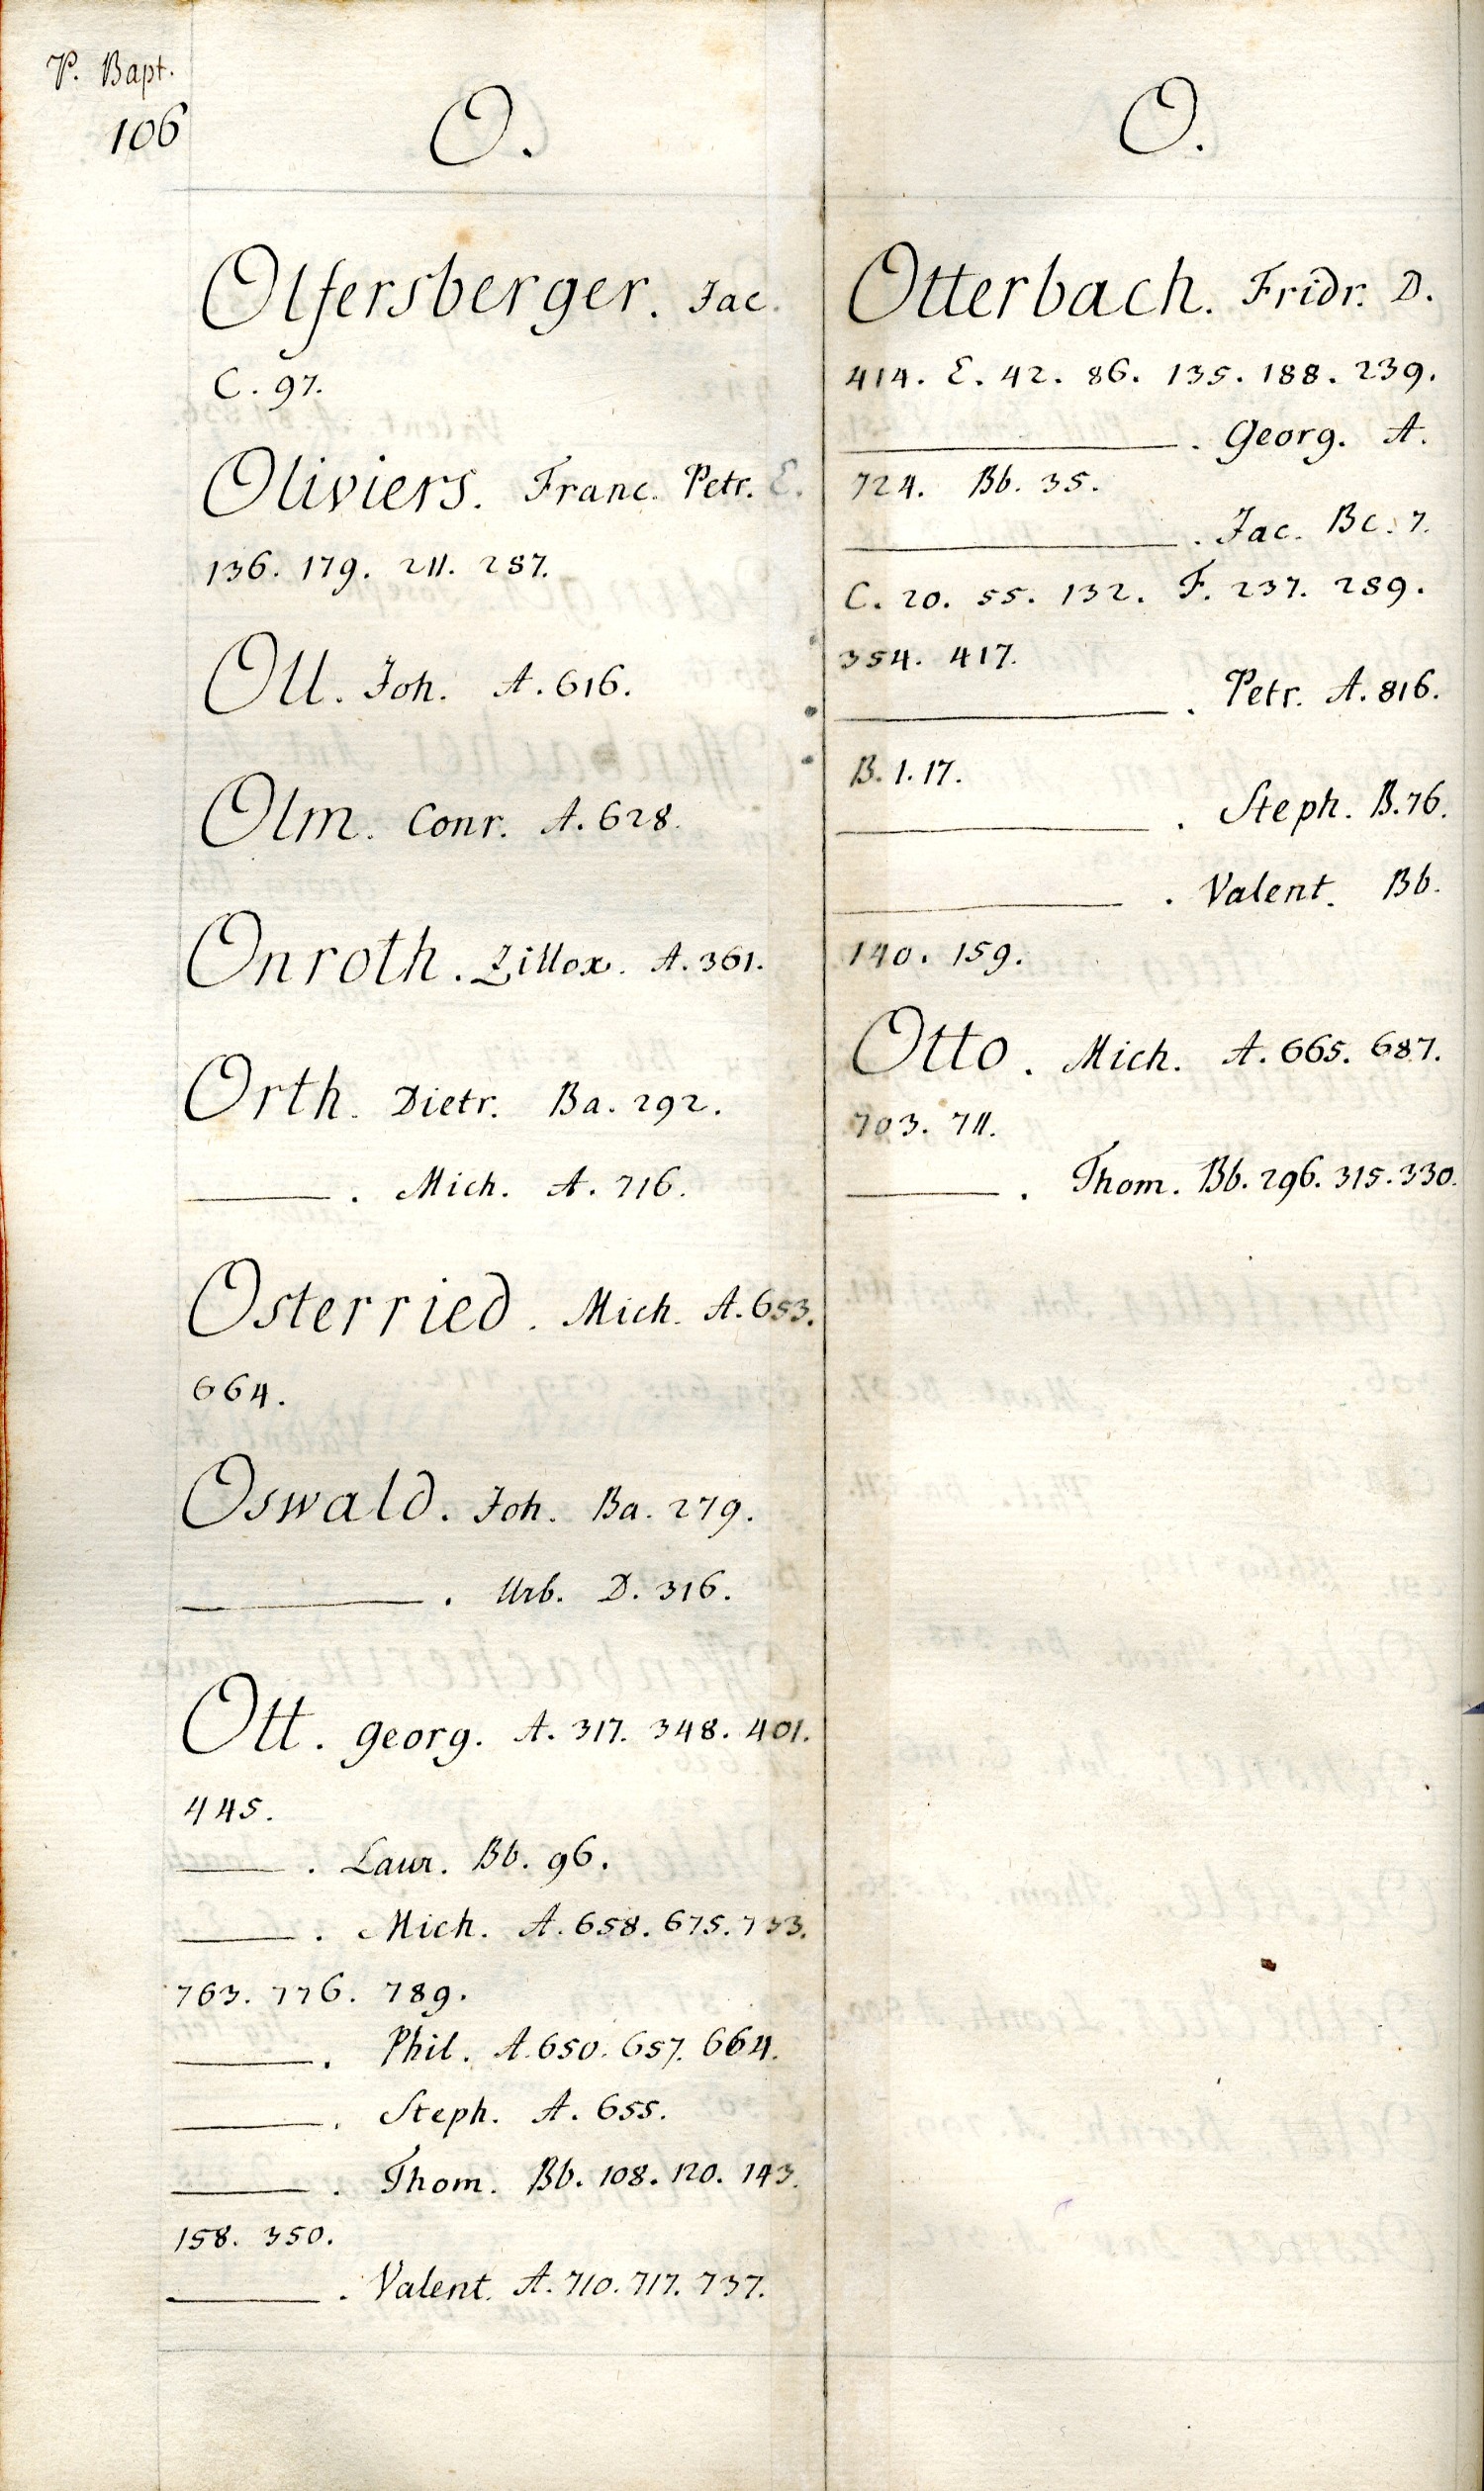 P. Bapt.
106
O.
Olfersberger. Jac.
C. 97.
Oliviers. Franc. Petr. E.
136. 179. 211. 287.
Oll. Joh. A. 616.
Olm. Conr. A. 628.
Onroth. Zillox. A. 361.
Orth. Dietr. Ba. 292.
———. Mich. A. 716.
Osterried. Mich. A. 653.
664.
Oswald. Joh. Ba. 279.
———. Urb. D. 316.
Ott. Georg. A. 317. 348. 401.
445.
———. Laur. Bb. 96.
———. Mich. A. 658. 675. 733.
763. 776. 789.
———. Phil. A. 650. 657. 664.
———. Steph. A. 655.
———. Thom. Bb. 108. 120. 143.
158. 350.
———. Valent. A. 710. 717. 737.
O.
Otterbach. Fridr. D.
414. E. 42. 86. 135. 188. 239.
———. Georg. A.
724. Bb. 35.
———. Jac. Bc. 7.
C. 20. 55. 132. F. 237. 289.
354. 417.
———. Petr. A. 816.
B. 1. 17.
———. Steph. B. 76.
———. Valent. Bb.
140. 159.
Otto. Mich. A. 665. 687.
703. 711.
———. Thom. Bb. 296. 315. 330.